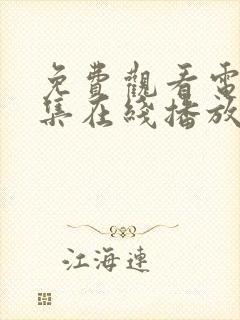 免費觀看電
集在綫播放
江海連